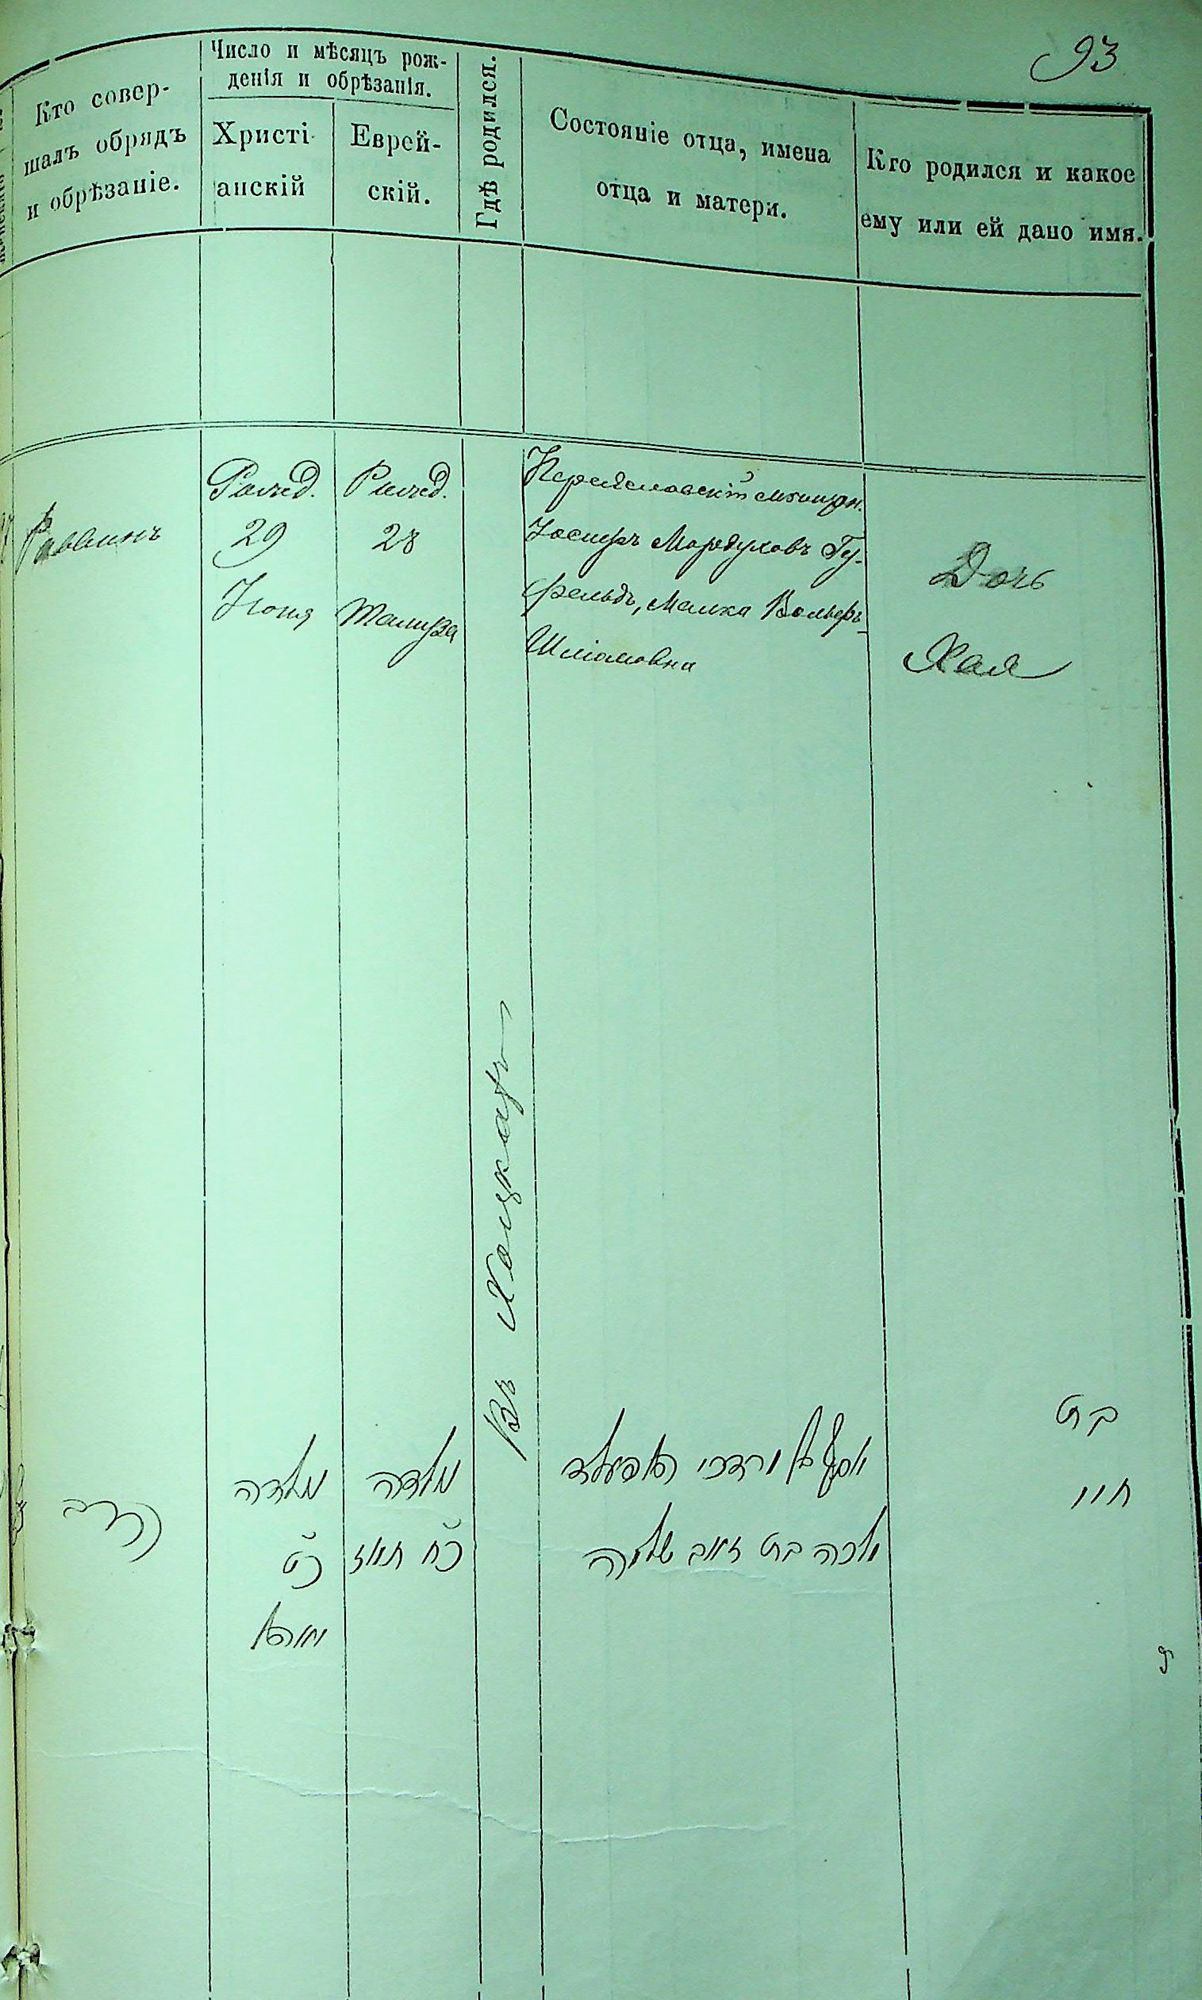 93
Кто совер-
шалъ обрядъ
и обрѣзаніе.
Число и мѣсяцъ рож-
денія и обрѣзанія.
Христі-
анскій
Еврей-
скій.
Гдѣ родился.
Состояніе отца, имена
отца и матери.
Кто родился и какое
ему или ей дано имя.
Раввинъ
Рожд.
29
Іюня
Рожд.
28
Тамуза
Въ Хоцкахъ
Переяславскій мѣщан.
Іосифъ Мордуховъ Гу-
фельдъ, Малка Вольфъ-
Шліомовна
Дочь
Хая
הרב
נולדה
כט
יוני
נולדה
כח תמוז
יוסף בן מרדכי
מלכה בת זאב שלמה
בת
חיי